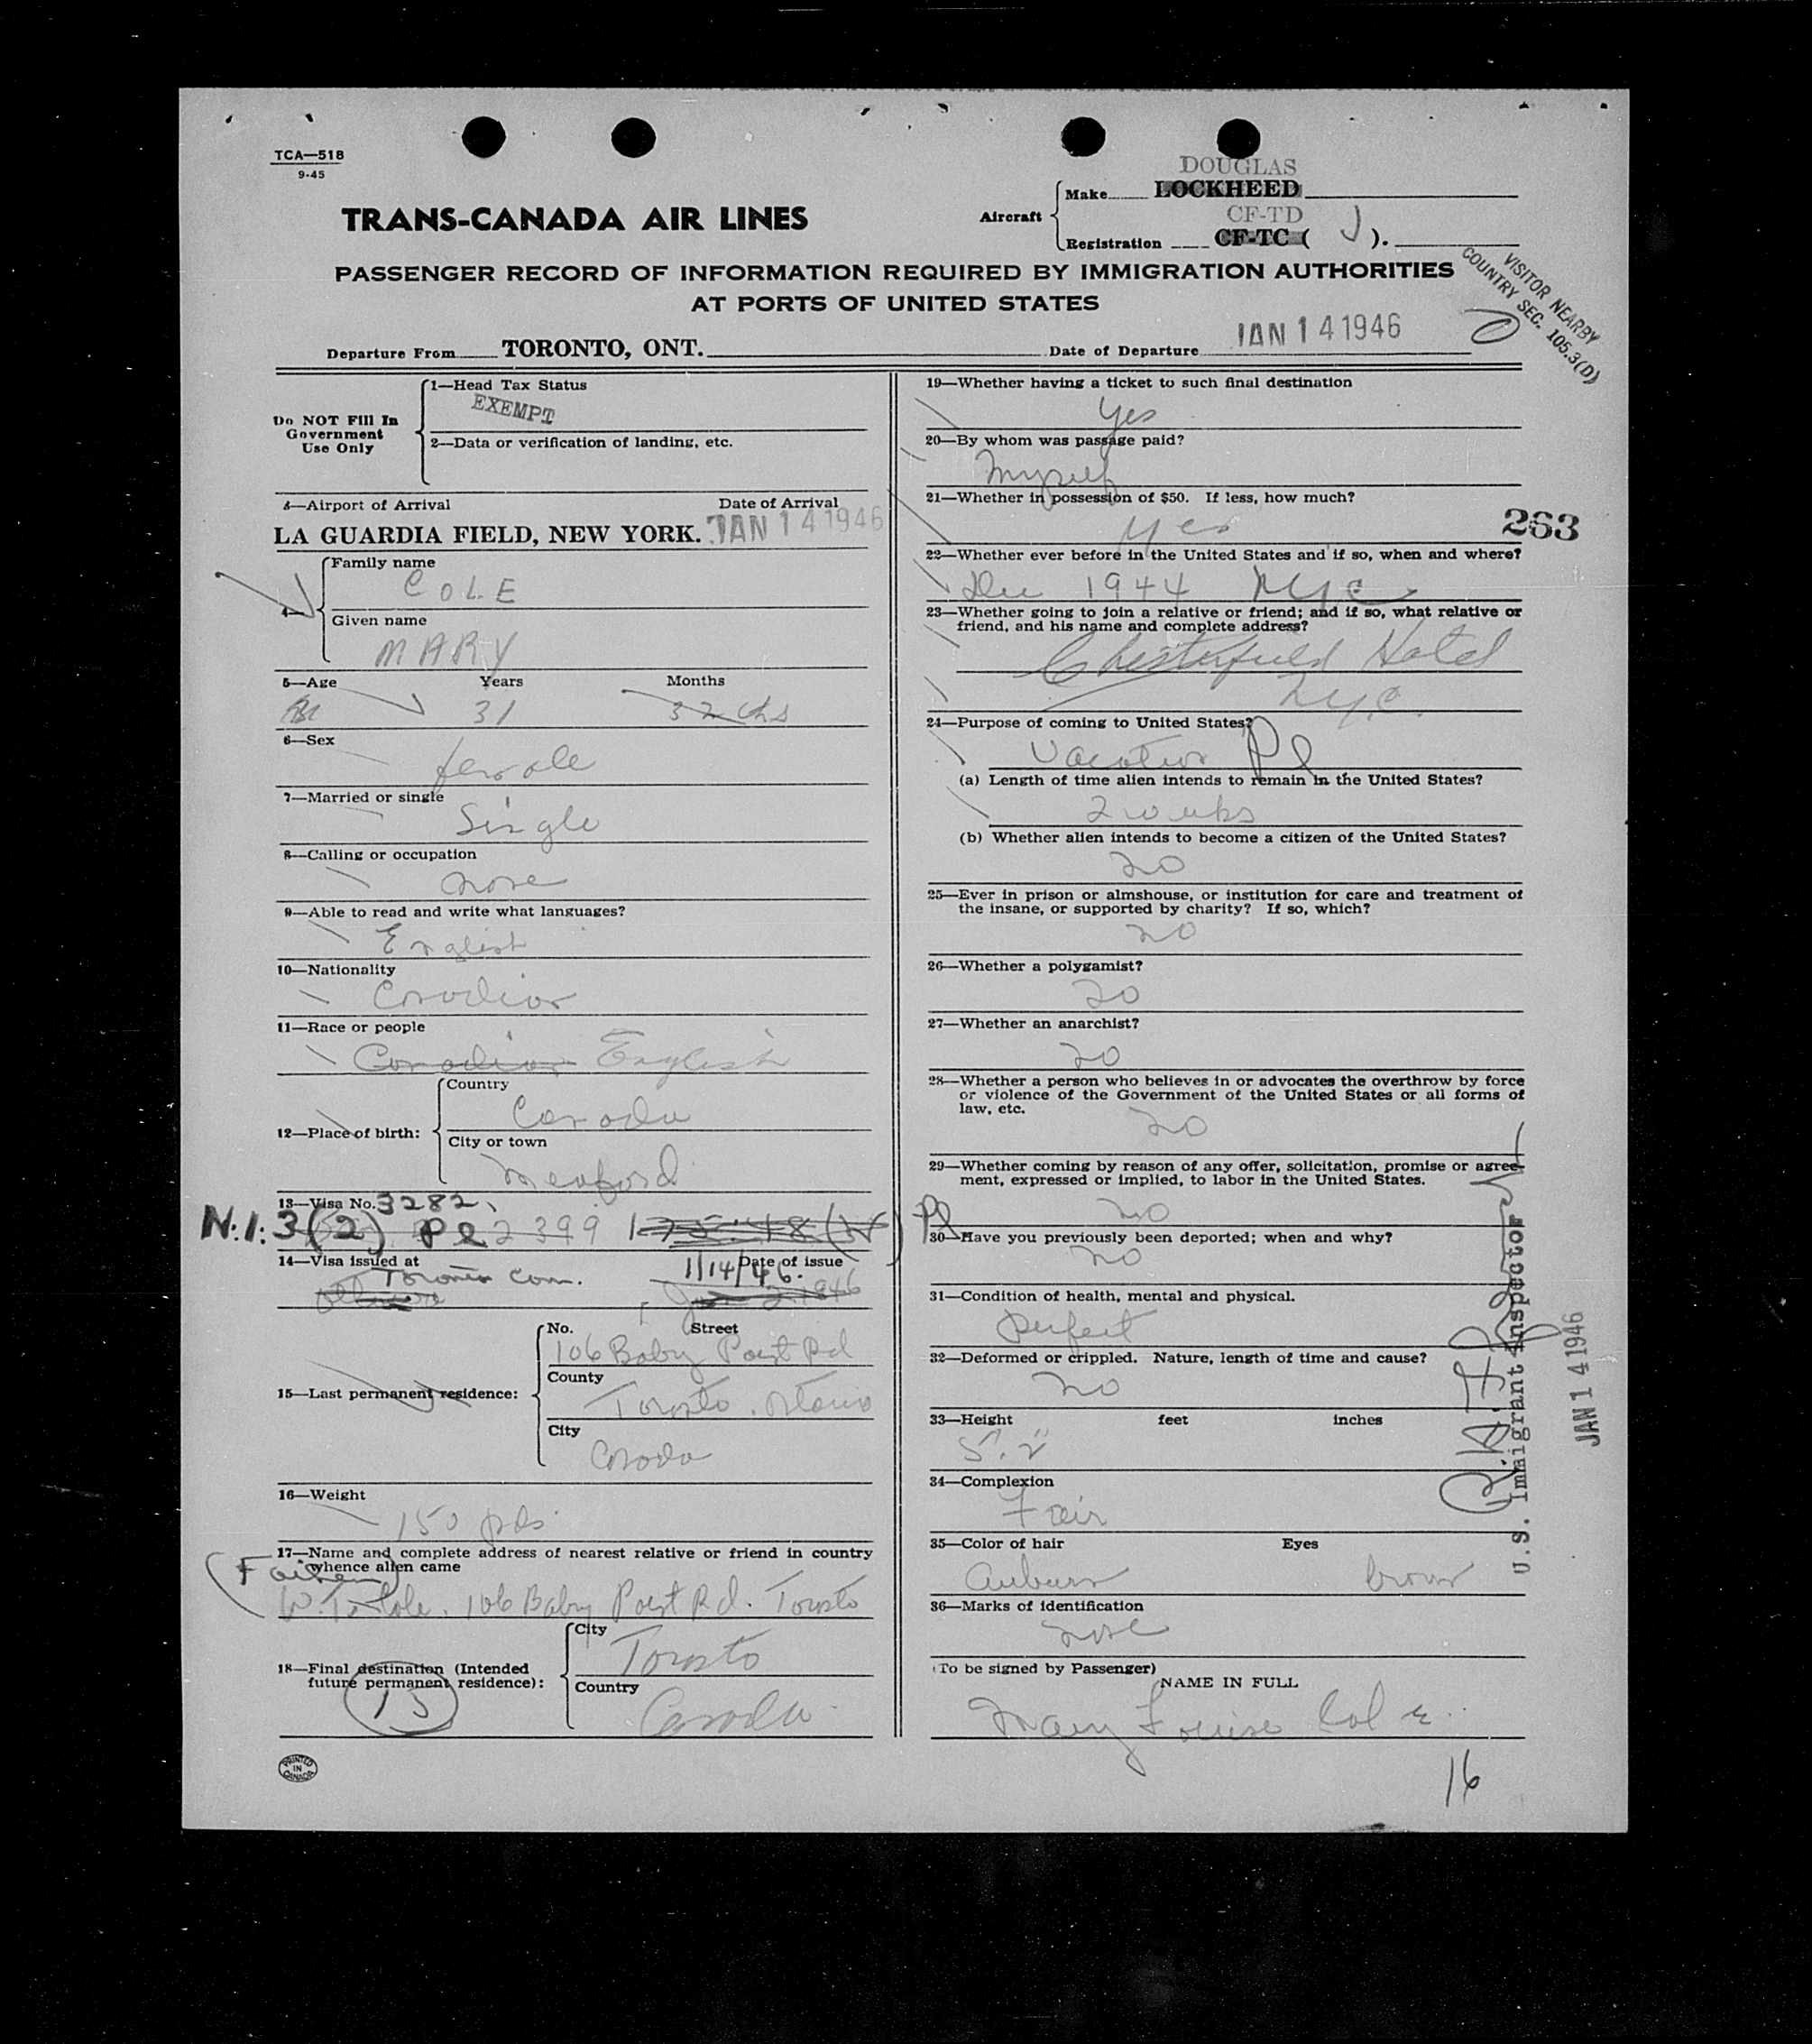 TCA—518
9-45
TRANS-CANADA AIR LINES
Aircraft
DOUGLAS
Make LOCKHEED
CF-TD
Registration CF-TC ( J ).
PASSENGER RECORD OF INFORMATION REQUIRED BY IMMIGRATION AUTHORITIES
AT PORTS OF UNITED STATES
VISITOR NEARBY
COUNTRY SEC. 105.3(D)
Departure From TORONTO, ONT. Date of Departure JAN 14 1946
Do NOT Fill In
Government
Use Only
1—Head Tax Status
EXEMPT
2—Data or verification of landing, etc.
3—Airport of Arrival Date of Arrival
LA GUARDIA FIELD, NEW YORK. JAN 14 1946
4—
Family name
COLE
Given name
MARY
5—Age Years Months
31
6—Sex
female
7—Married or single
Single
8—Calling or occupation
none
9—Able to read and write what languages?
English
10—Nationality
Canadian
11—Race or people
Canadian English
12—Place of birth:
Country
Canada
City or town
Meaford
13—Visa No. 3282
N.I. 3(2) Pl 2399
14—Visa issued at Date of issue
Toronto Can. 1/14/46.
15—Last permanent residence:
No. Street
106 Baby Point Rd
County
Toronto. Ontario
City
Canada
16—Weight
150 pds.
17—Name and complete address of nearest relative or friend in country
whence alien came
(Father)
W. T. Cole. 106 Baby Point Rd. Toronto
18—Final destination (Intended
future permanent residence):
13
City
Toronto
Country
Canada
PRINTED
IN
CANADA
19—Whether having a ticket to such final destination
Yes
20—By whom was passage paid?
Myself
21—Whether in possession of $50. If less, how much?
yes
263
22—Whether ever before in the United States and if so, when and where?
Dec 1944 NYC
23—Whether going to join a relative or friend; and if so, what relative or
friend, and his name and complete address?
Chesterfield Hotel
N.Y.C.
24—Purpose of coming to United States?
Vacation Pl
(a) Length of time alien intends to remain in the United States?
2 weeks
(b) Whether alien intends to become a citizen of the United States?
no
25—Ever in prison or almshouse, or institution for care and treatment of
the insane, or supported by charity? If so, which?
no
26—Whether a polygamist?
no
27—Whether an anarchist?
no
28—Whether a person who believes in or advocates the overthrow by force
or violence of the Government of the United States or all forms of
law, etc.
no
29—Whether coming by reason of any offer, solicitation, promise or agree-
ment, expressed or implied, to labor in the United States.
Pl no
30—Have you previously been deported; when and why?
no
31—Condition of health, mental and physical.
perfect
32—Deformed or crippled. Nature, length of time and cause?
no
33—Height feet inches
5' 2"
34—Complexion
Fair
35—Color of hair Eyes
auburn brown
36—Marks of identification
none
(To be signed by Passenger)
NAME IN FULL
Mary Louise Cole.
U.S. Immigrant Inspector
JAN 14 1946
16